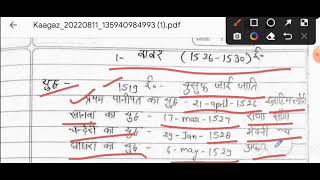 Kaagaz_20220811_135940984993 (1).pdf
1- बाबर (1526-1530) ई०
युद्ध - 1519 ई०- युसुफ जाई जाति
प्रथम पानीपत का युद्ध - 21-april-1526
खानवा का युद्ध - 17-mar-1527 राणा सांगा
चन्देरी का युद्ध - 29-Jan-1528 मेदनी राय
घाघरा का युद्ध - 6-may-1529